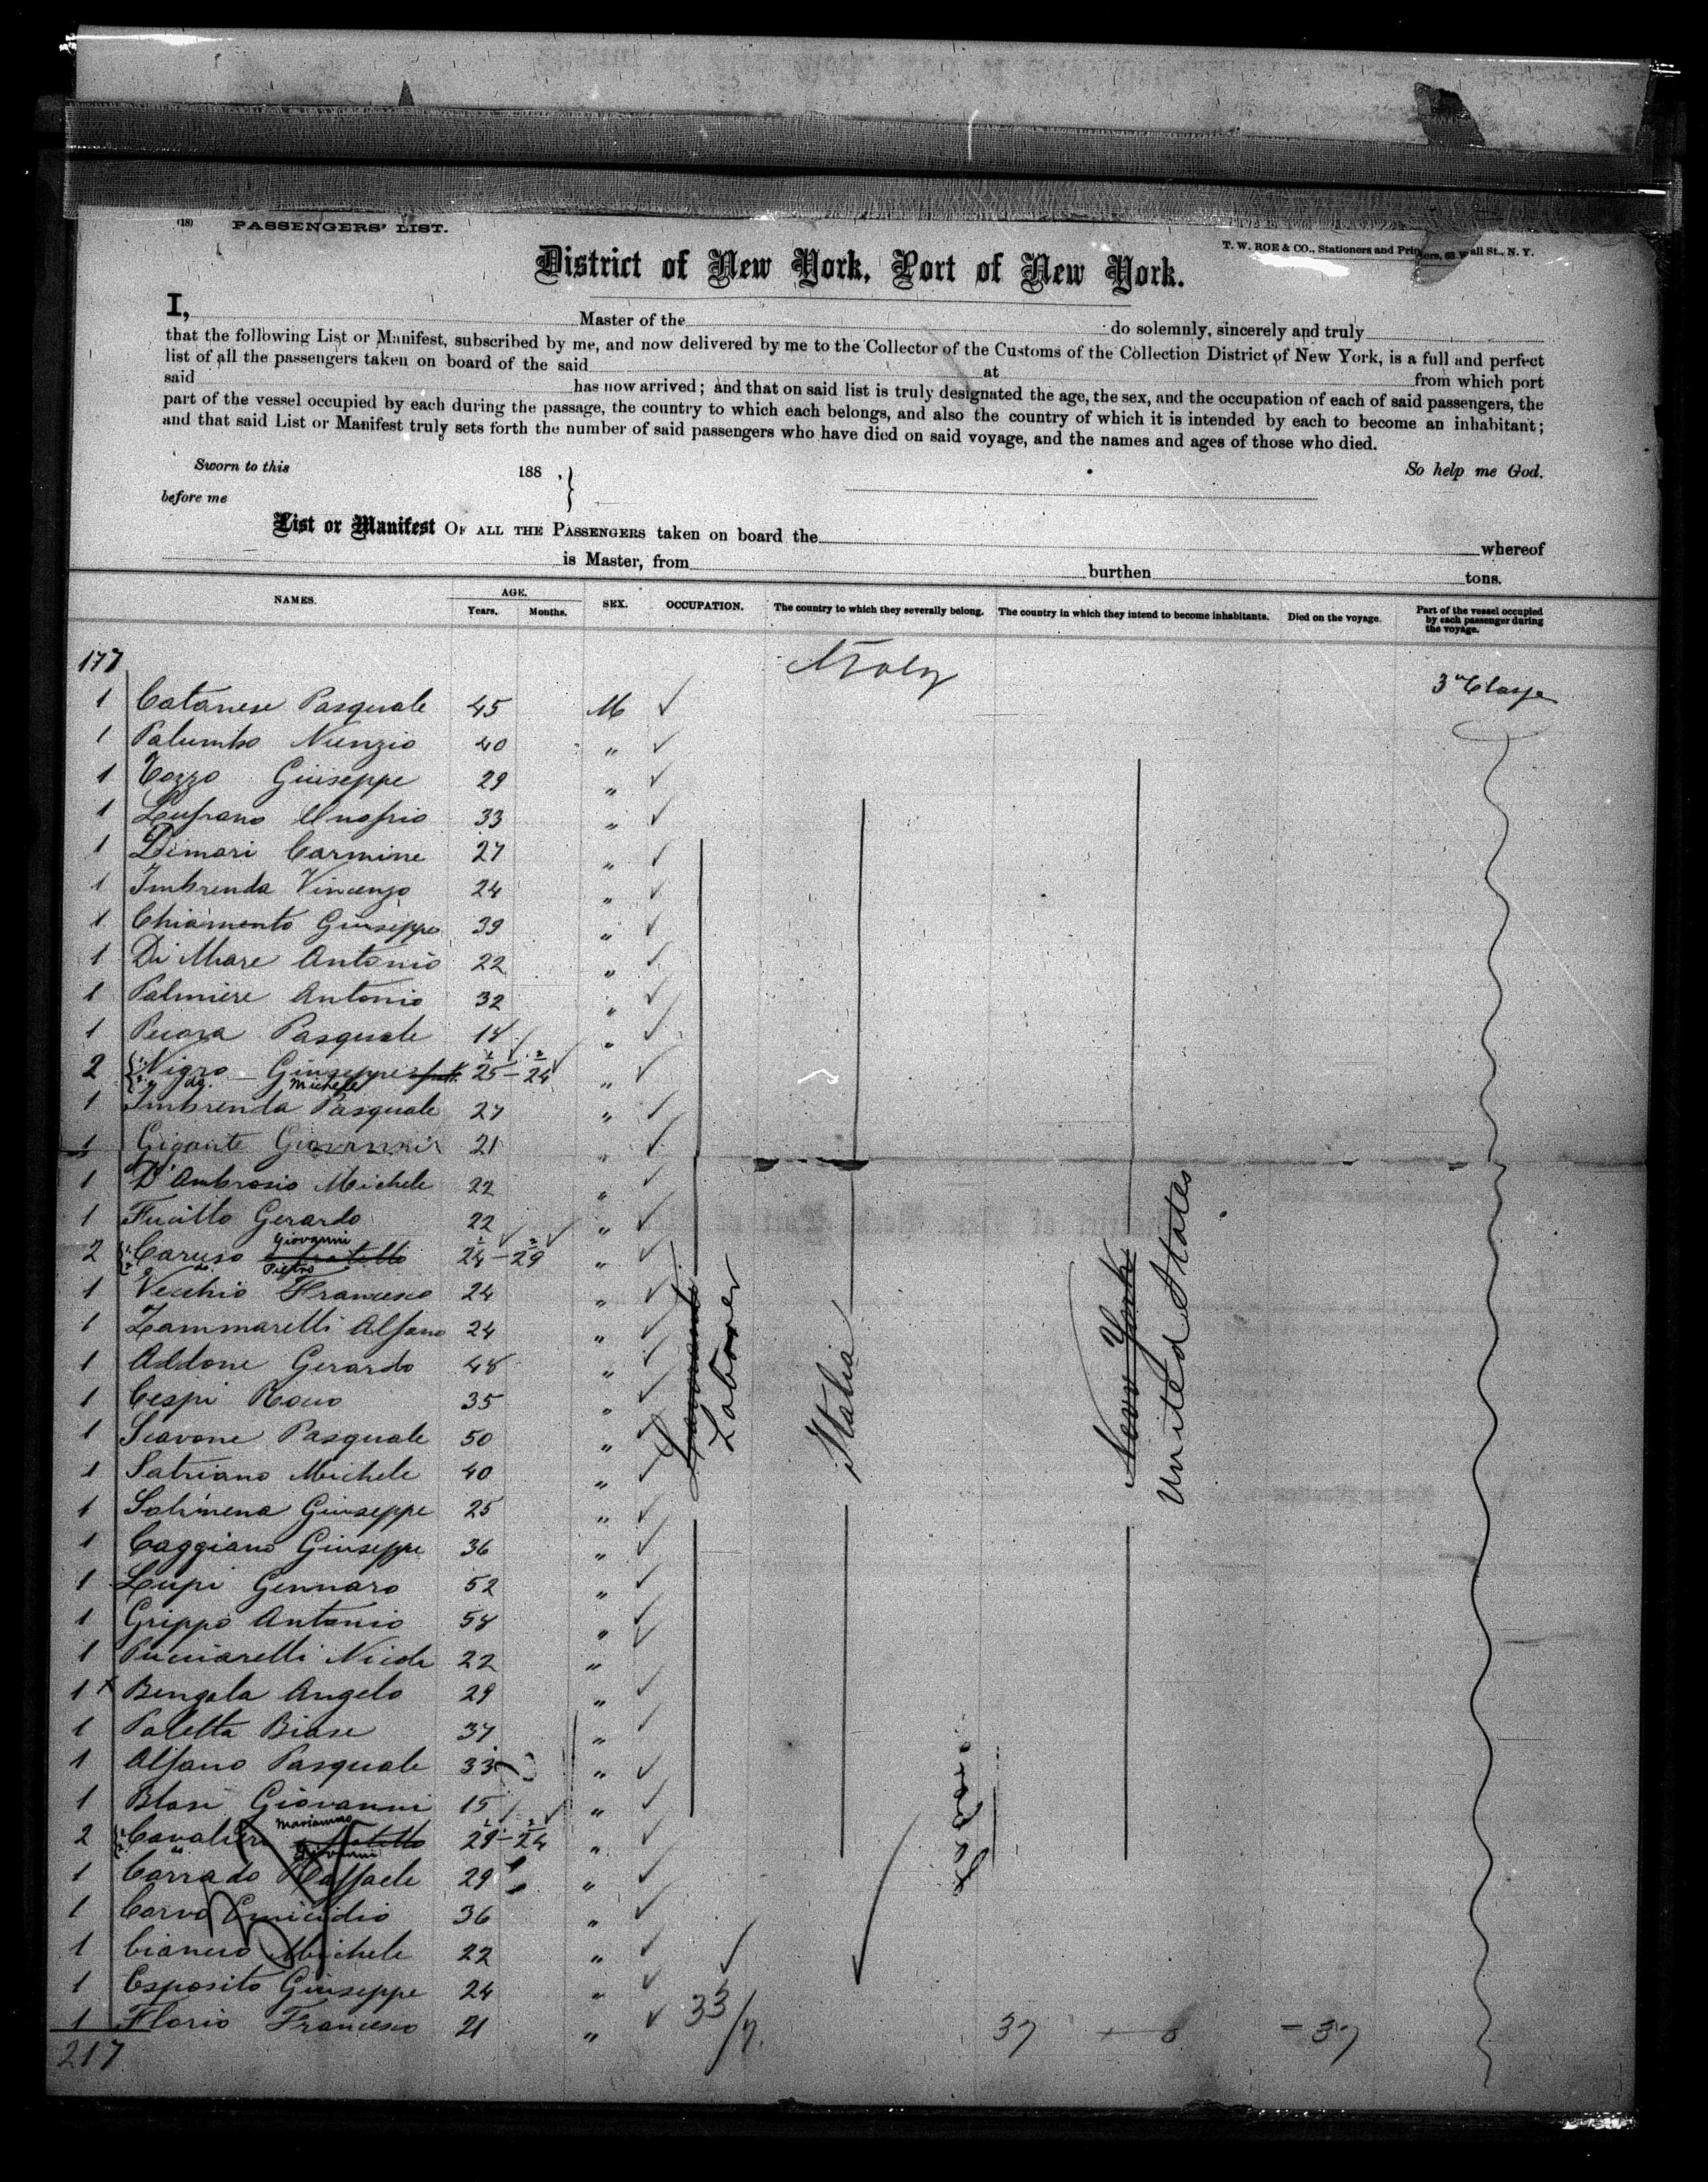 (18) PASSENGERS' LIST.
T. W. ROE & CO., Stationers and Prin ers, 63 Wall St., N. Y.
District of New York, Port of New York.
I, Master of the do solemnly, sincerely and truly
that the following List or Manifest, subscribed by me, and now delivered by me to the Collector of the Customs of the Collection District of New York, is a full and perfect
list of all the passengers taken on board of the said at from which port
said has now arrived; and that on said list is truly designated the age, the sex, and the occupation of each of said passengers, the
part of the vessel occupied by each during the passage, the country to which each belongs, and also the country of which it is intended by each to become an inhabitant;
and that said List or Manifest truly sets forth the number of said passengers who have died on said voyage, and the names and ages of those who died.
Sworn to this 188 . So help me God.
before me
List or Manifest OF ALL THE PASSENGERS taken on board the whereof
is Master, from burthen tons.
NAMES. AGE. Years. Months. SEX. OCCUPATION. The country to which they severally belong. The country in which they intend to become inhabitants. Died on the voyage. Part of the vessel occupied by each passenger during the voyage.
177 Italy
1 Catanese Pasquale 45 M 3a Classe
1 Palumbo Nunzio 40 "
1 Tozzo Giuseppe 29 "
1 Lufrano Onofrio 33 "
1 Dimari Carmine 27 "
1 Imbrenda Vincenzo 24 "
1 Chiamento Giuseppe 39 "
1 Di Mare Antonio 22 "
1 Palmiere Antonio 32 "
1 Pecora Pasquale 18 "
2 Nigro Giuseppe 25 - 24 "
do. Michele
1 Imbrenda Pasquale 27 "
1 Gigante Giovanni 21 "
1 D'Ambrosio Michele 22 "
1 Fucillo Gerardo 22 "
Giovanni
2 Caruso e fratello 24 - 29 "
do. Pietro
1 Vecchio Francesco 24 "
1 Zammarelli Alfano 24 "
1 Addone Gerardo 48 "
1 Cespi Rocco 35 "
1 Scavone Pasquale 50 "
1 Satriano Michele 40 "
1 Salimena Giuseppe 25 "
1 Caggiano Giuseppe 36 "
1 Lupi Gennaro 52 "
1 Grippo Antonio 58 "
1 Pucciarelli Nicola 22 "
1 x Bengala Angelo 29 "
1 Paletta Biase 37 "
1 Alfano Pasquale 33 "
1 Blasi Giovanni 15 "
Marianno
2 Cavalieri e fratello 29 - 24 "
" Giovanni
1 Corrado Raffaele 29 "
1 Corvo Emiciddio 36 "
1 Cianero Michele 22 "
1 Esposito Giuseppe 24 "
1 Florio Francesco 21 "
217
Laborer
Italia
New York
United States
33/7. 37 + 0 = 37